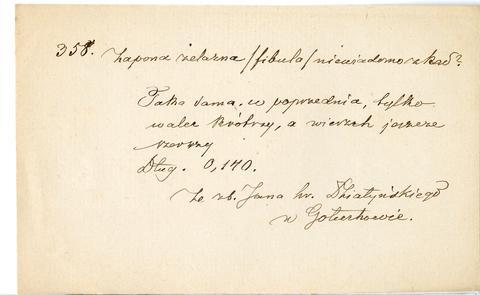 358. Zapona żelazna /fibula/ niewiadomo zkąd?
Taka sama, w poprzednia, tylko
walec krótszy, a wierzch jeszcze
szerszy
Dług. 0,140.
Ze zb. Jana hr. Działyńskiego
w Gołuchowie.